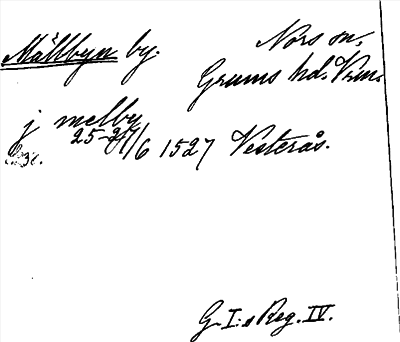 Mällbyn by. Nors sn.
Grums hd. Vrm.
j melby
25-27/6 1527 Vesterås.
G. I:s Reg. IV.